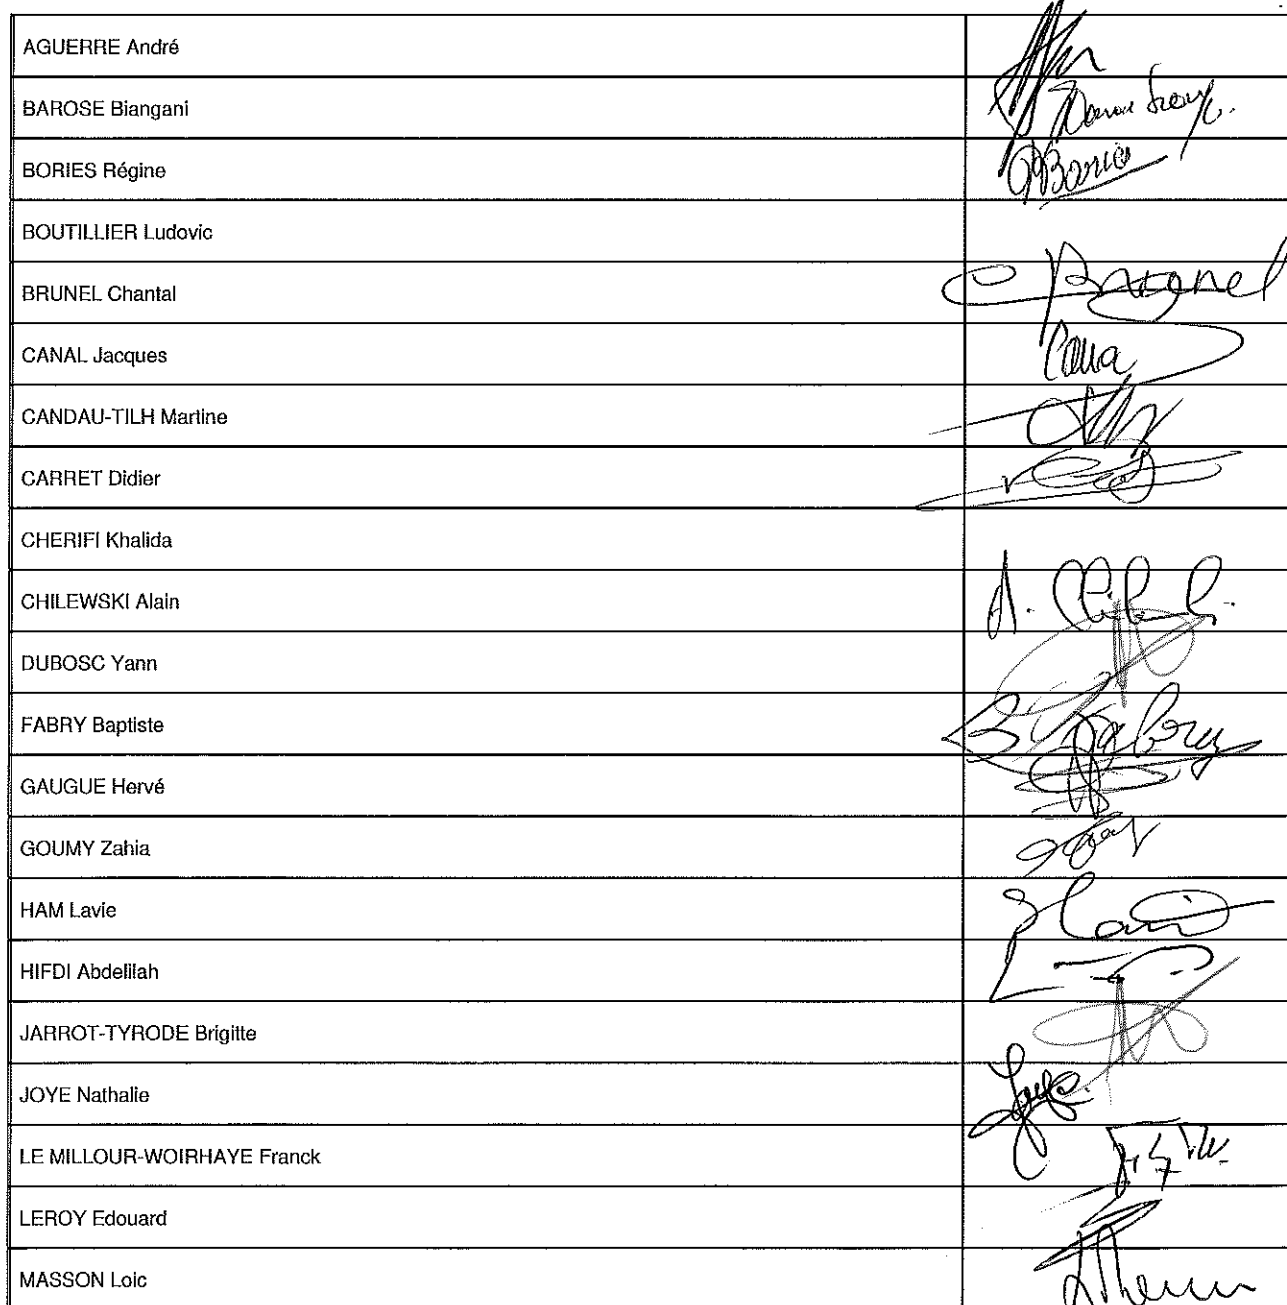 AGUERRE André
BAROSE Biangani
BORIES Régine
BOUTILLIER Ludovic
BRUNEL Chantal
CANAL Jacques
CANDAU-TILH Martine
CARRET Didier
CHERIFI Khalida
CHILEWSKI Alain
DUBOSC Yann
FABRY Baptiste
GAUGUE Hervé
GOUMY Zahia
HAM Lavie
HIFDI Abdelilah
JARROT-TYRODE Brigitte
JOYE Nathalie
LE MILLOUR-WOIRHAYE Franck
LEROY Edouard
MASSON Loic